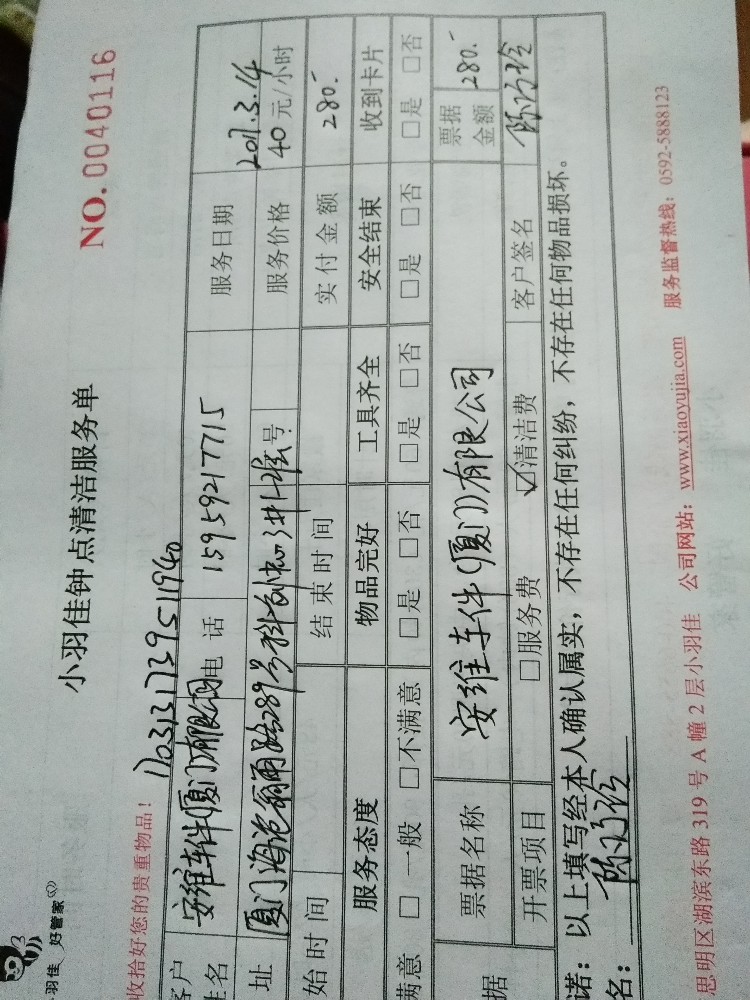 羽佳 好管家
小羽佳钟点清洁服务单
NO.0040116
收拾好您的贵重物品!
170331739511940
安维车件(厦门)有限公司 电 话 15959217715 服务日期 2017.3.14
址 厦门海沧翁角路289号科创 号 服务价格 40元/小时
始时间 结束时间 实付金额 280.-
服务态度 物品完好 工具齐全 安全结束 收到卡片
满意 □ 一般 □不满意 □是 □否 □是 □否 □是 □否 □是 □否
据 票据名称 安维车件(厦门)有限公司 票据金额 280.-
开票项目 □服务费 ☑清洁费 客户签名
诺:以上填写经本人确认属实,不存在任何纠纷,不存在任何物品损坏。
名:
思明区湖滨东路 319 号 A 幢 2 层小羽佳 公司网站:www.xiaoyujia.com 服务监督热线:0592-5888123